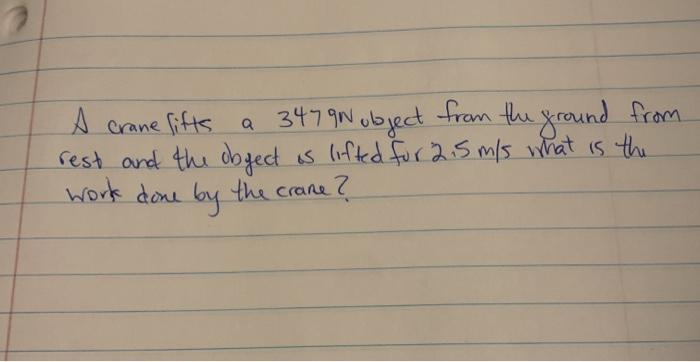 A crane lifts a 3479N object from the ground from
rest and the object is lifted for 2.5 m/s what is the
work done by the crane?